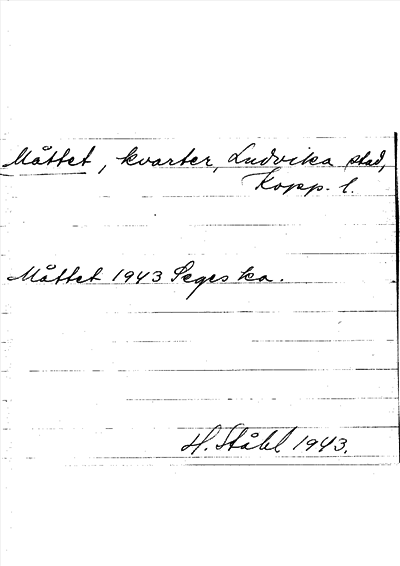 Måttet, kvarter, Ludvika stad,
Kopp. l.
Måttet 1943 Seges ka.
H. Ståhl 1943.